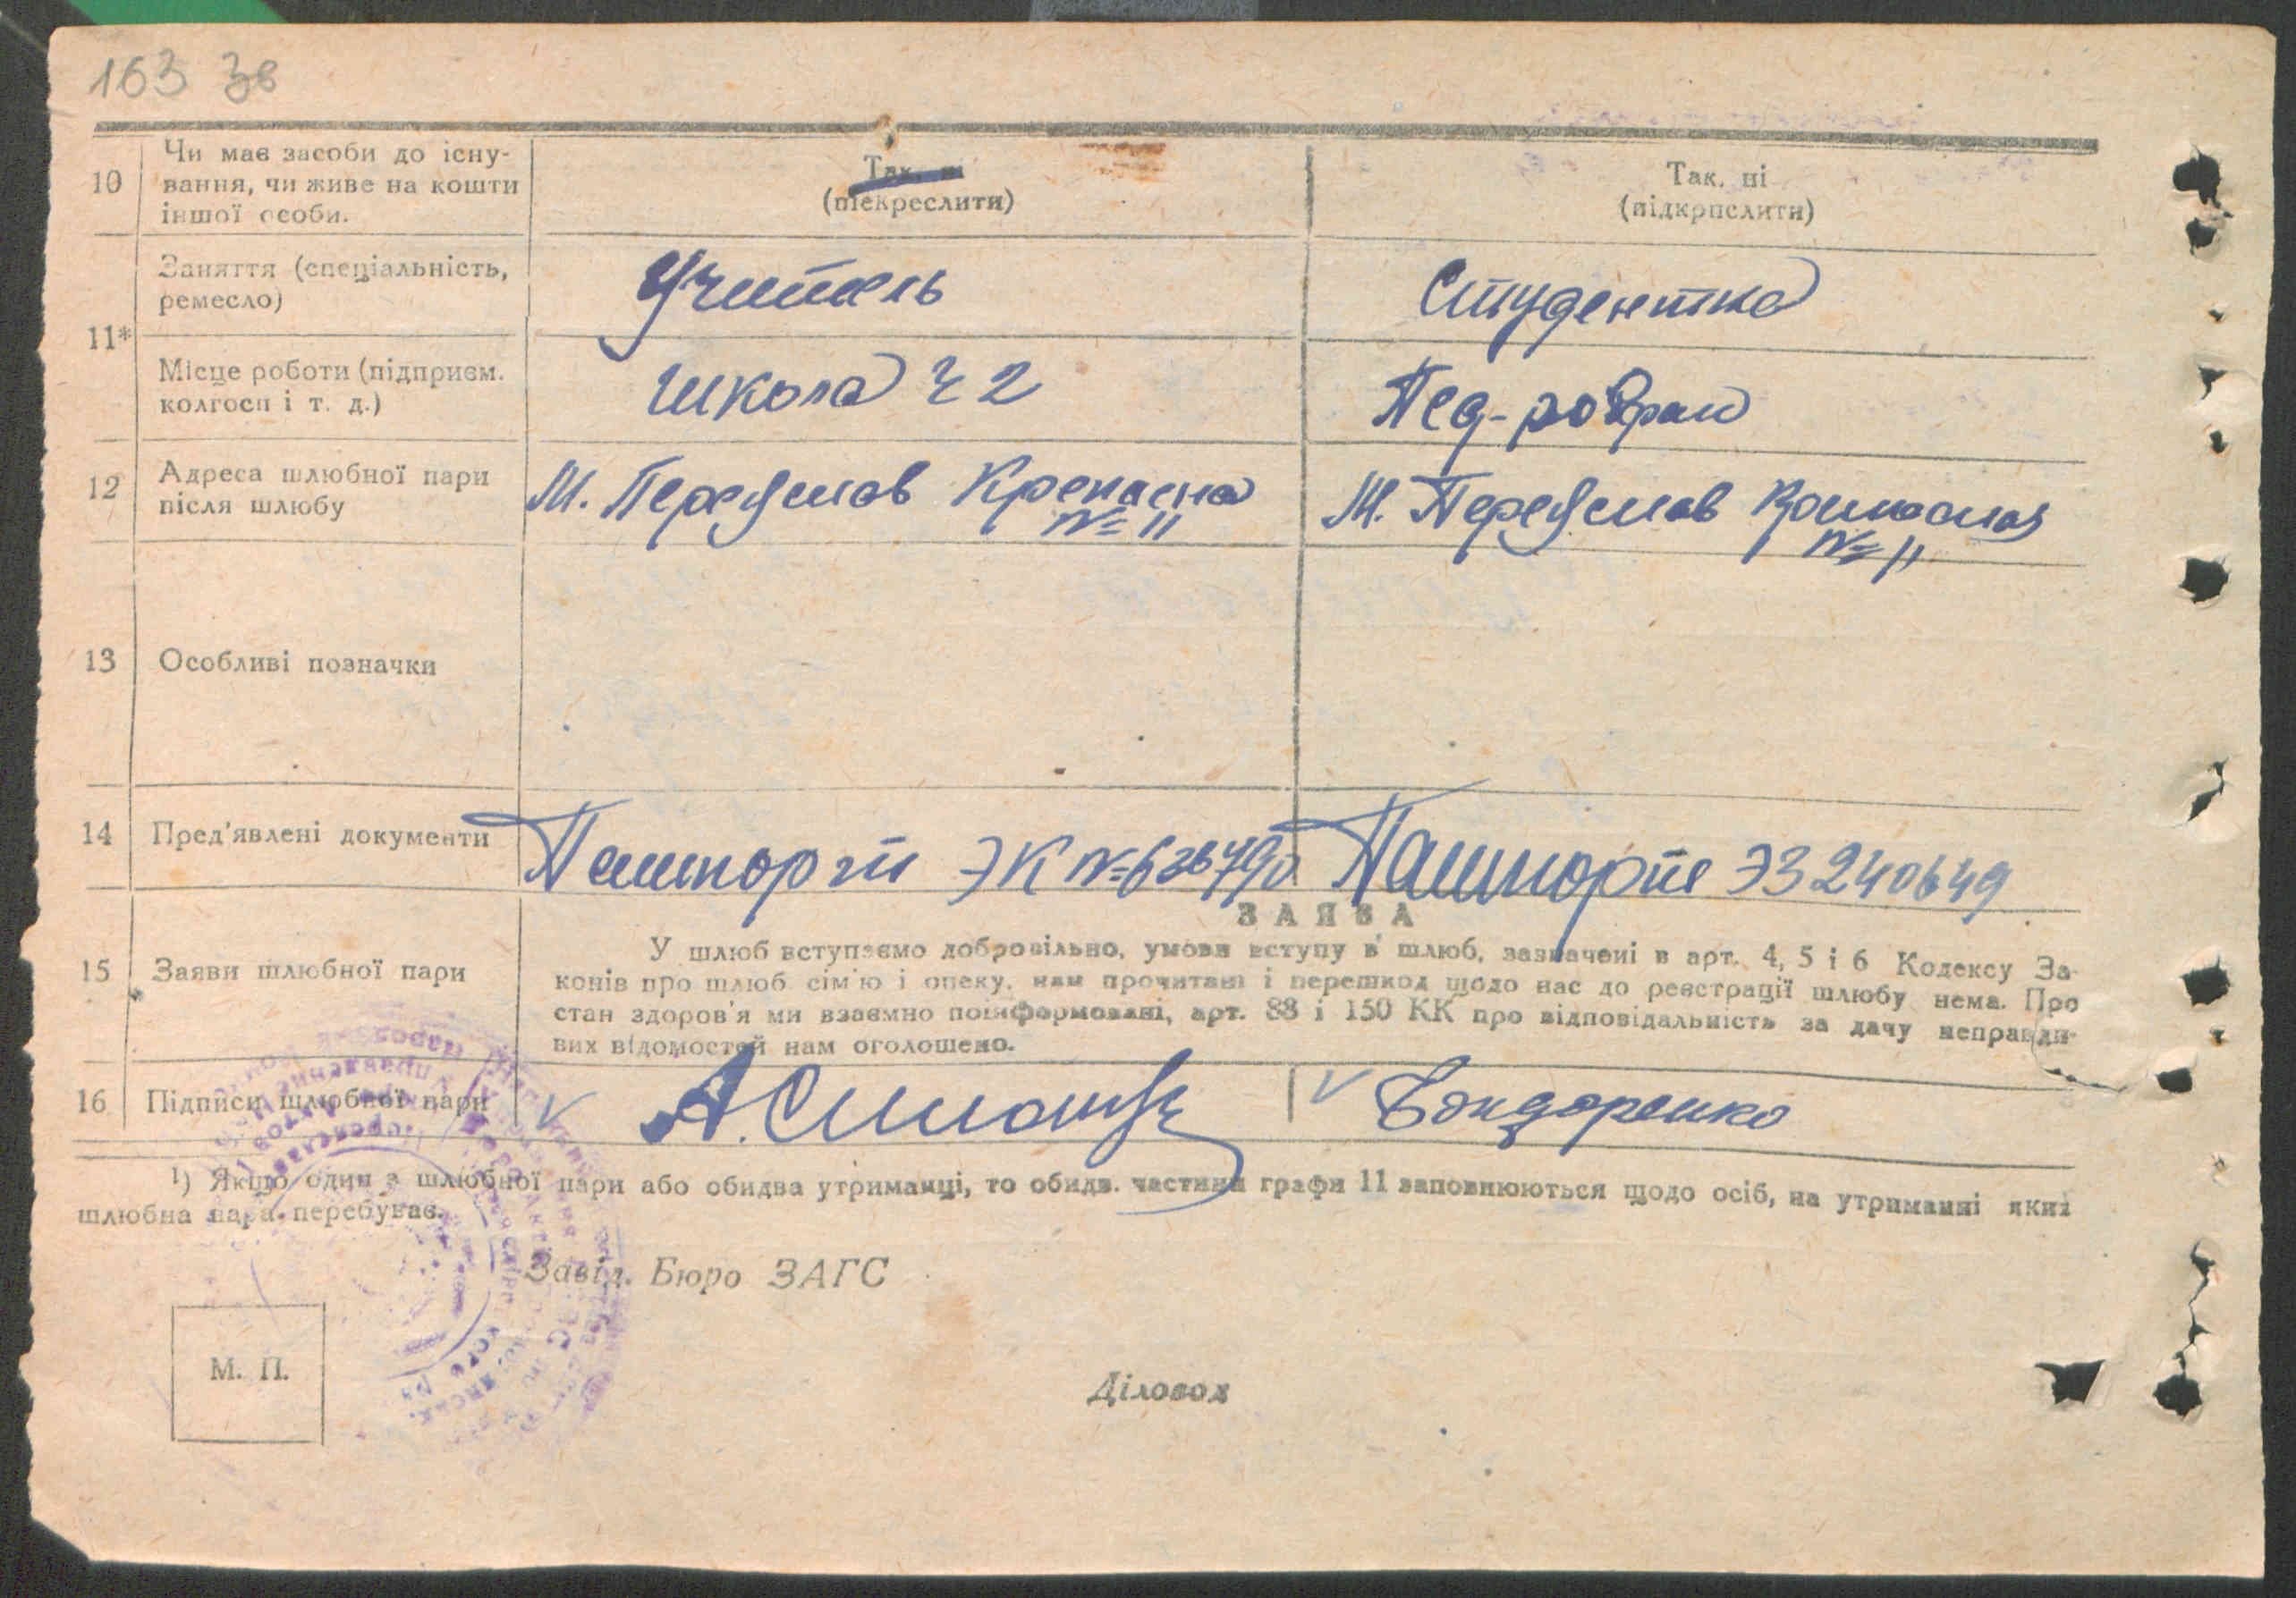 163 зв
10
Чи має засоби до існу-
вання, чи живе на кошти
іншої особи.
Так, ні
(підкреслити)
Так, ні
(підкрпслити)
11*
Заняття (спеціальність,
ремесло)
Учитель
Студентка
Місце роботи (підприєм.
колгосп і т. д.)
Школа ч 2
Пед-
12
Адреса шлюбної пари
після шлюбу
М. Переяслав
№ 11
М. Переяслав
№ 11
13
Особливі позначки
14
Пред'явлені документи
Пашпорт ЭК №
Пашпорт ЭЗ 240649
15
Заяви шлюбної пари
ЗАЯВА
У шлюб вступаємо добровільно, умови вступу в шлюб, зазначені в арт. 4, 5 і 6 Кодексу За-
конів про шлюб сім'ю і опеку, нам прочитані і перешкод щодо нас до реєстрації шлюбу нема. Про
стан здоров'я ми взаємно поінформовані, арт. 88 і 150 КК про відповідальність за дачу неправди-
вих відомостей нам оголошено.
16
Підписи шлюбної пари
V
А.
V Бондаренко
¹) Якщо один з шлюбної пари або обидва утриманці, то обидв. частини графи 11 заповнюються щодо осіб, на утриманні яких
шлюбна пара перебуває.
Завід. Бюро ЗАГС
М. П.
Діловод